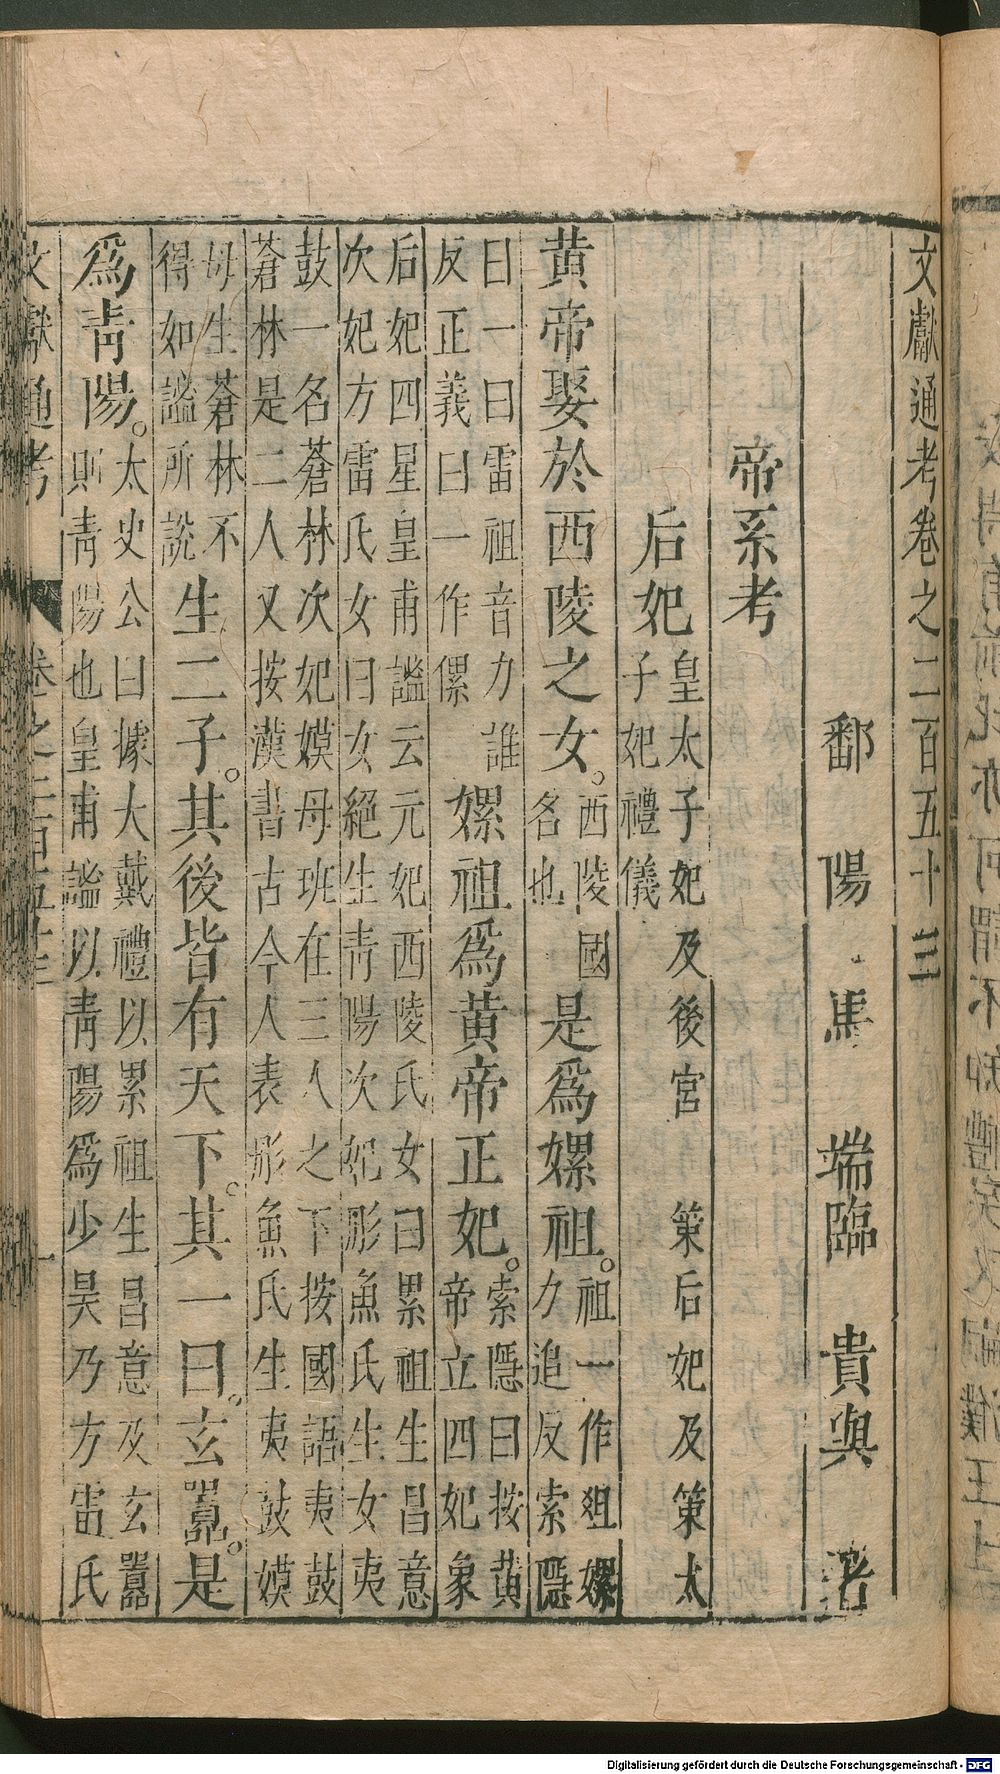 文獻通考卷之二百五十三
鄱陽馬端臨貴與著
帝系考
后妃皇太子妃及後宮 䇿后妃及䇿太
子妃禮儀
黄帝娶於西陵之女。西陵國
名也是爲嫘祖。祖一作俎嫘
力追反索隱
曰一曰雷祖音力誰
反正義曰一作傫嫘祖爲黄帝正妃。索隱曰按黄
帝立四妃象
后妃四星皇甫謐云元妃西陵氏女曰累祖生昌意
次妃方雷氏女曰女絕生青陽次妃彤魚氏生女夷
鼓一名蒼林次妃嫫母班在三人之下按國語夷鼓
蒼林是二人又按漢書古今人表彤魚氏生夷鼓嫫
母生蒼林不
得如謐所說生二子。其後皆有天下。其一曰。玄囂。是
爲青陽。太史公曰據大戴禮以累祖生昌意及玄囂
則青陽也皇甫謐以青陽爲少昊乃方雷氏
文獻通考 卷之二百五十三 一
Digitalisierung gefördert durch die Deutsche Forschungsgemeinschaft - DFG